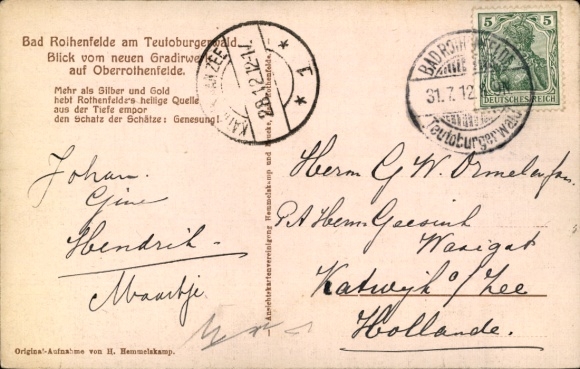 Bad Rothenfelde am Teutoburgerwald
Blick vom neuen Gradirwerk
auf Oberrothenfelde.
Mehr als Silber und Gold
hebt Rothenfelde's heilige Quelle
aus der Tiefe empor
den Schatz der Schätze: Genesung!
Johan.
Gine
Hendrik
Maartje.
Original-Aufnahme von H. Hemmelskamp.
Ansichtskartenvereinigung Hemmelskamp und
Rothenfelde.
5 5
DEUTSCHES REICH
BAD ROTHENFELDE
31.7.12
Teutoburgerwald
AAN ZEE
1
Herrn G. W.
P/A Herrn
Katwijk a/Zee
Hollande.